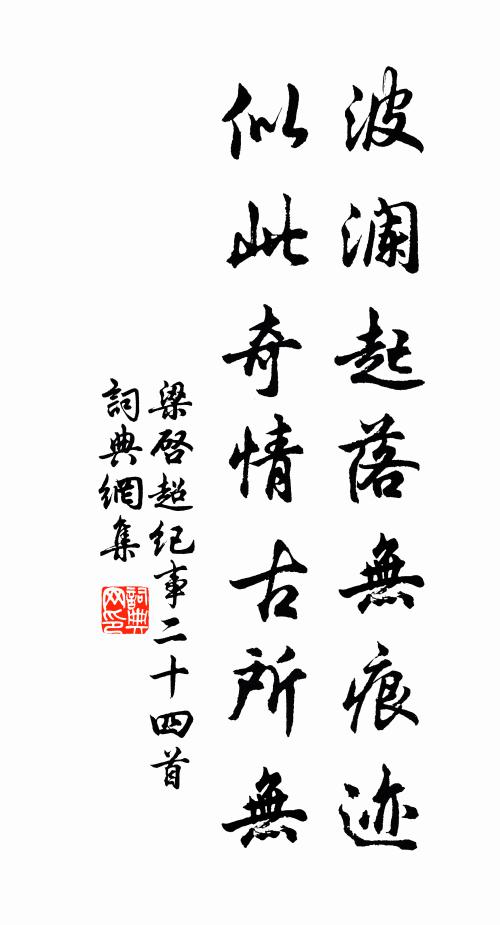 波瀾起落無痕迹
似此奇情古所無
梁啓超纪事二十四首
詞典網集
詞典网印